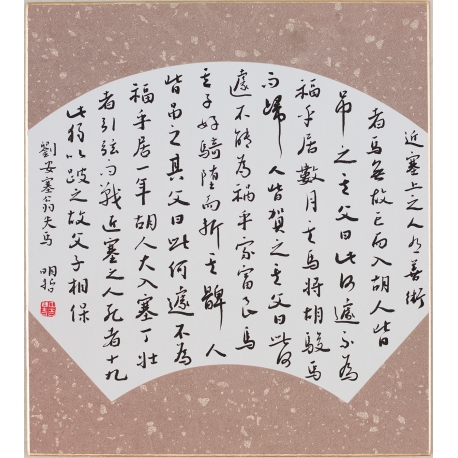 近塞上之人有善術
者馬無故亡而入胡人皆
吊之其父曰此何遽不為
福乎居數月其馬將胡駿馬
而歸人皆賀之其父曰此何
遽不能為禍乎家富良馬
其子好騎墮而折其髀人
皆吊之其父曰此何遽不為
福乎居一年胡人大入塞丁壯
者引弦而戰近塞之人死者十九
此獨以跛之故父子相保
劉安塞翁失馬 明哲